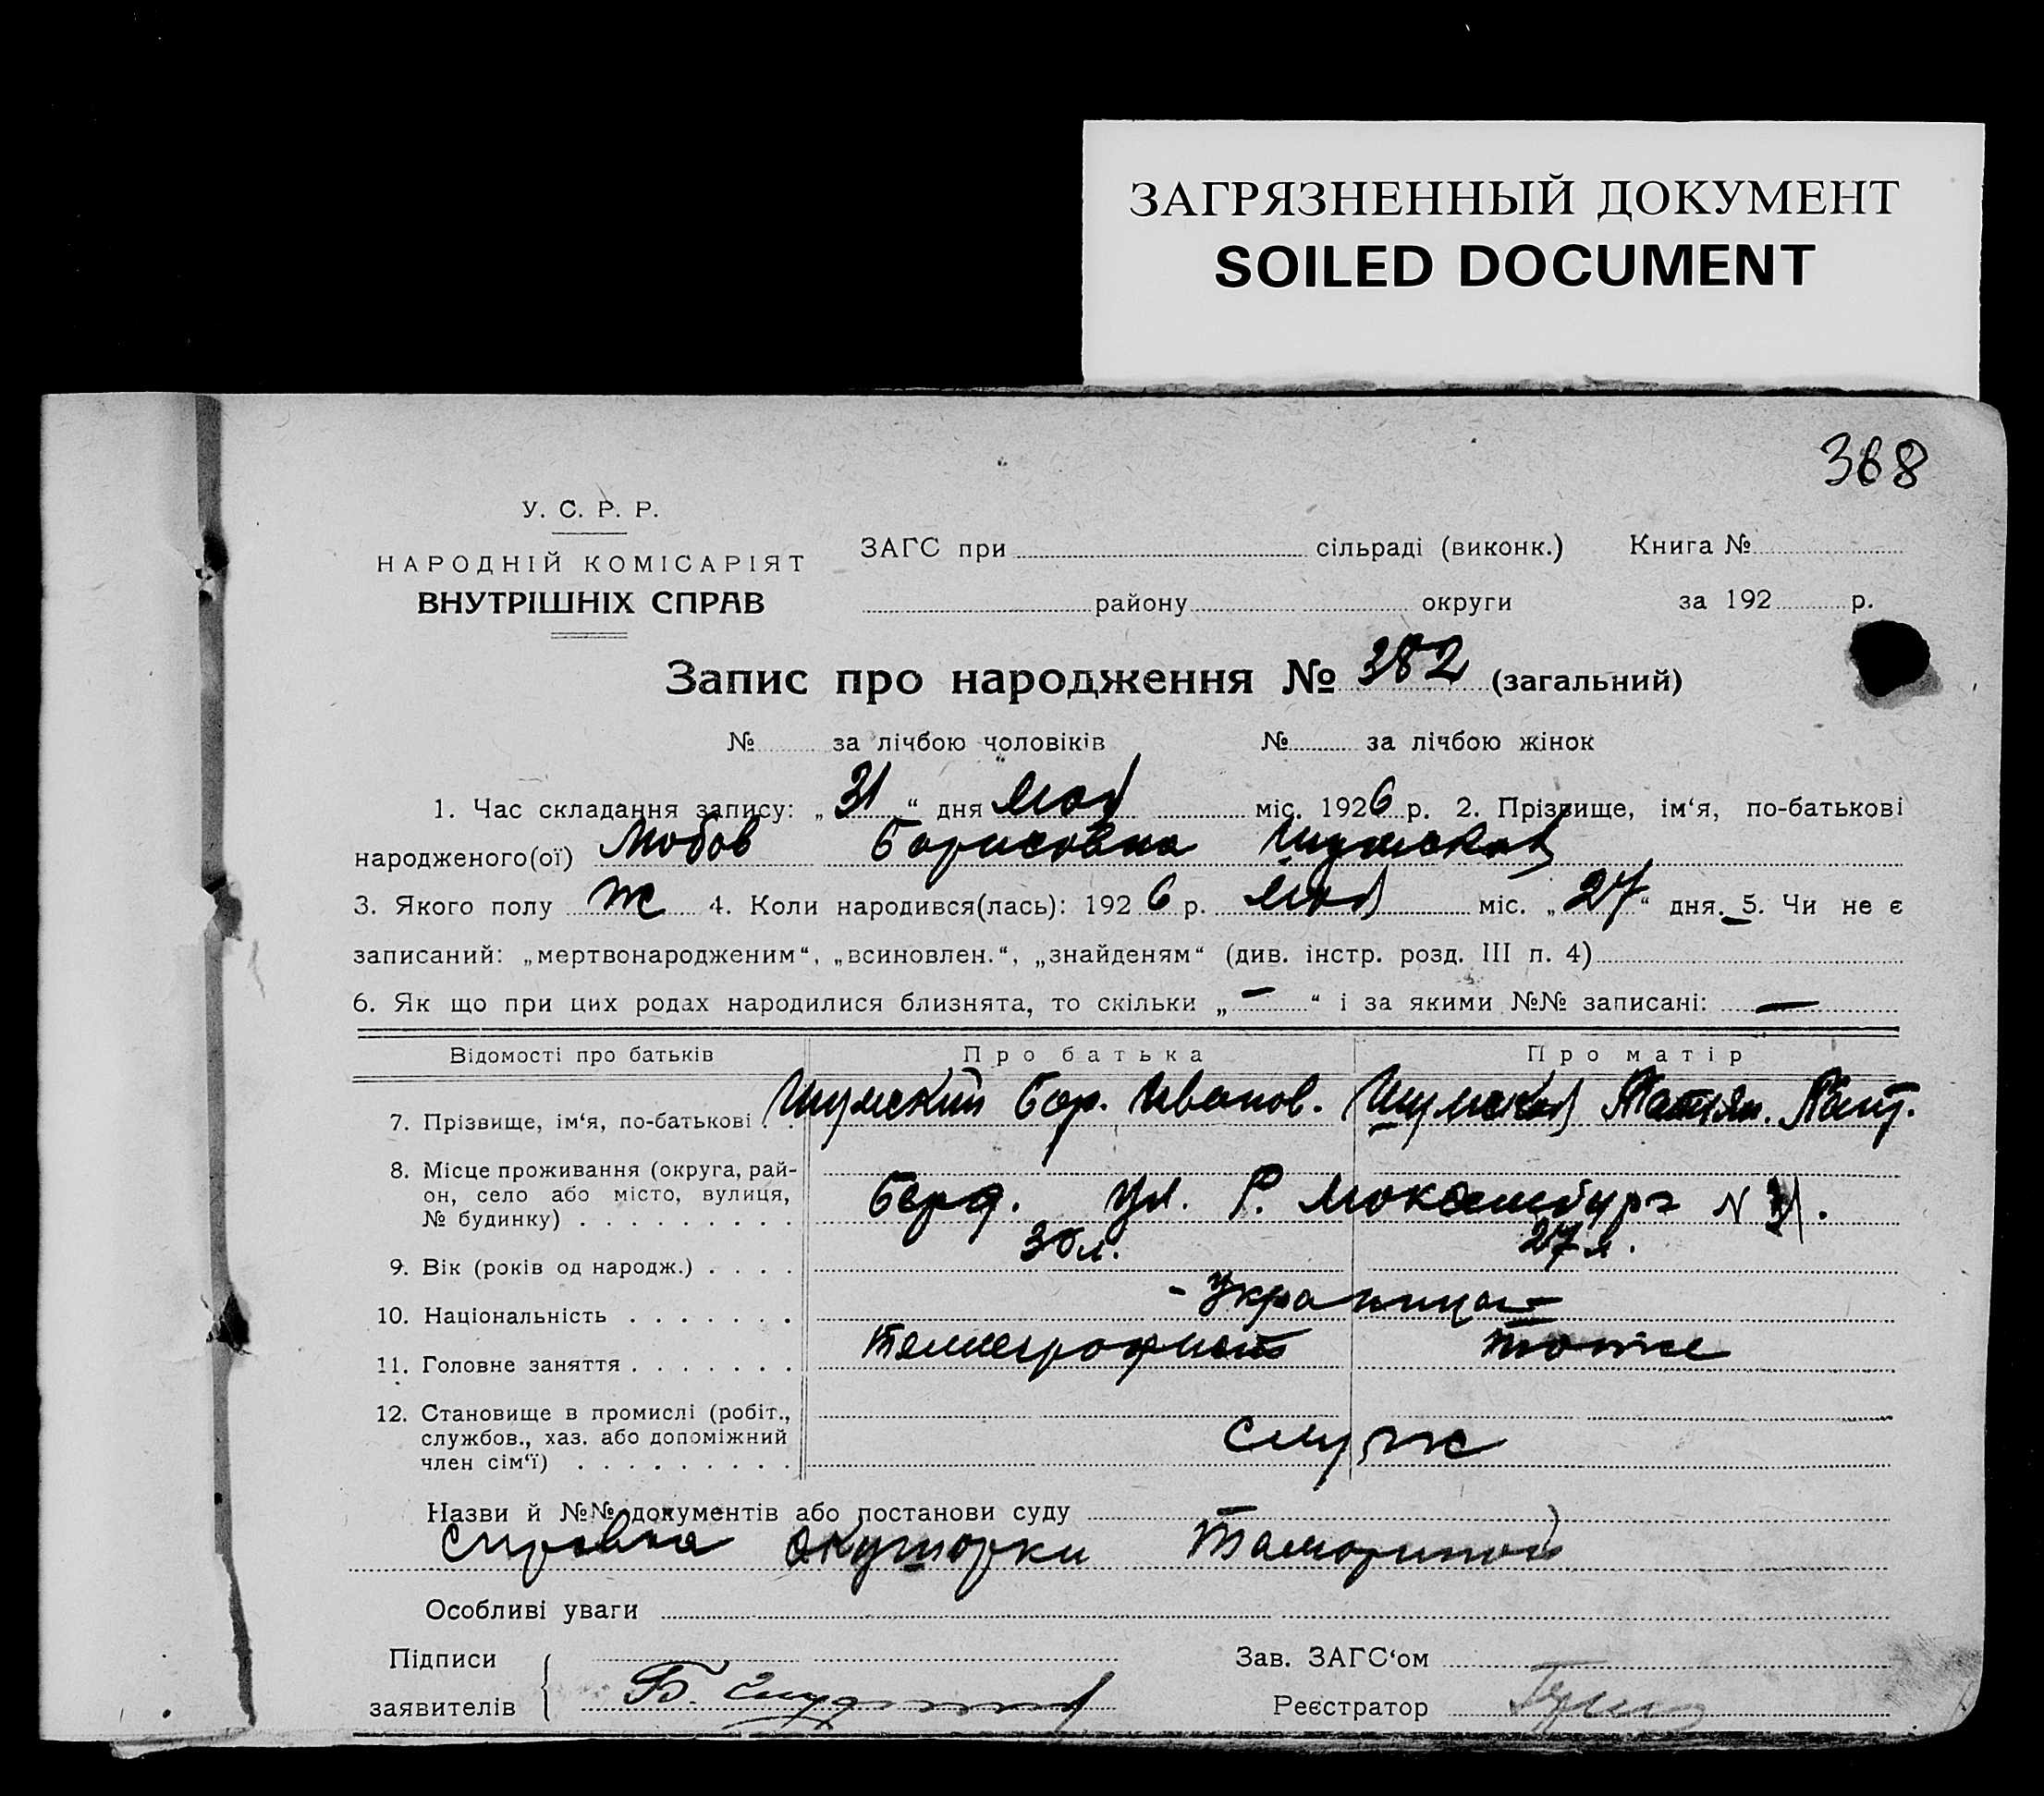 ЗАГРЯЗНЕННЫЙ ДОКУМЕНТ
SOILED DOCUMENT
368
У. С. Р. Р.
НАРОДНІЙ КОМІСАРІЯТ
ВНУТРІШНІХ СПРАВ
ЗАГС при сільраді (виконк.) Книга №
району округи за 192 р.
Запис про народження № 382 (загальний)
№ за лічбою чоловіків № за лічбою жінок
1. Час складання запису: „31“ дня мая міс. 1926 р. 2. Прізвище, ім‘я, по-батькові
народженого(ої) Любов Борисовна Шумская
3. Якого полу ж 4. Коли народився(лась): 1926 р. мая міс. „27“ дня. 5. Чи не є
записаний: „мертвонародженим“, „всиновлен.“, „знайденям“ (див. інстр. розд. III п. 4)
6. Як що при цих родах народилися близнята, то скільки „—“ і за якими №№ записані: —
Відомості про батьків Про батька Про матір
7. Прізвище, ім‘я, по-батькові . . Шумский Бор. Иванов. Шумская Татьян. Пант.
8. Місце проживання (округа, рай-
он, село або місто, вулиця,
№ будинку) . . . . . . . . . Берд. ул. Р. Люксембург N
9. Вік (років од народж.) . . . . 30 л. 27 л.
10. Національність . . . . . . . - Украинцы -
11. Головне заняття . . . . . . . телеграфист тоже
12. Становище в промислі (робіт.,
службов., хаз. або допоміжний
член сім‘ї) . . . . . . . . . служ
Назви й №№ документів або постанови суду
справка акушорки
Особливі уваги
Підписи Зав. ЗАГС‘ом
заявителів Б. Реєстратор